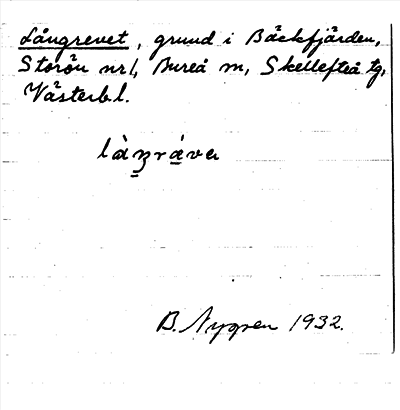 Långrevet, grund i Bäckfjärden,
Storön nr 1, Bureå sn, Skellefteå tg,
Västerb. l.
B. Nygren 1932.